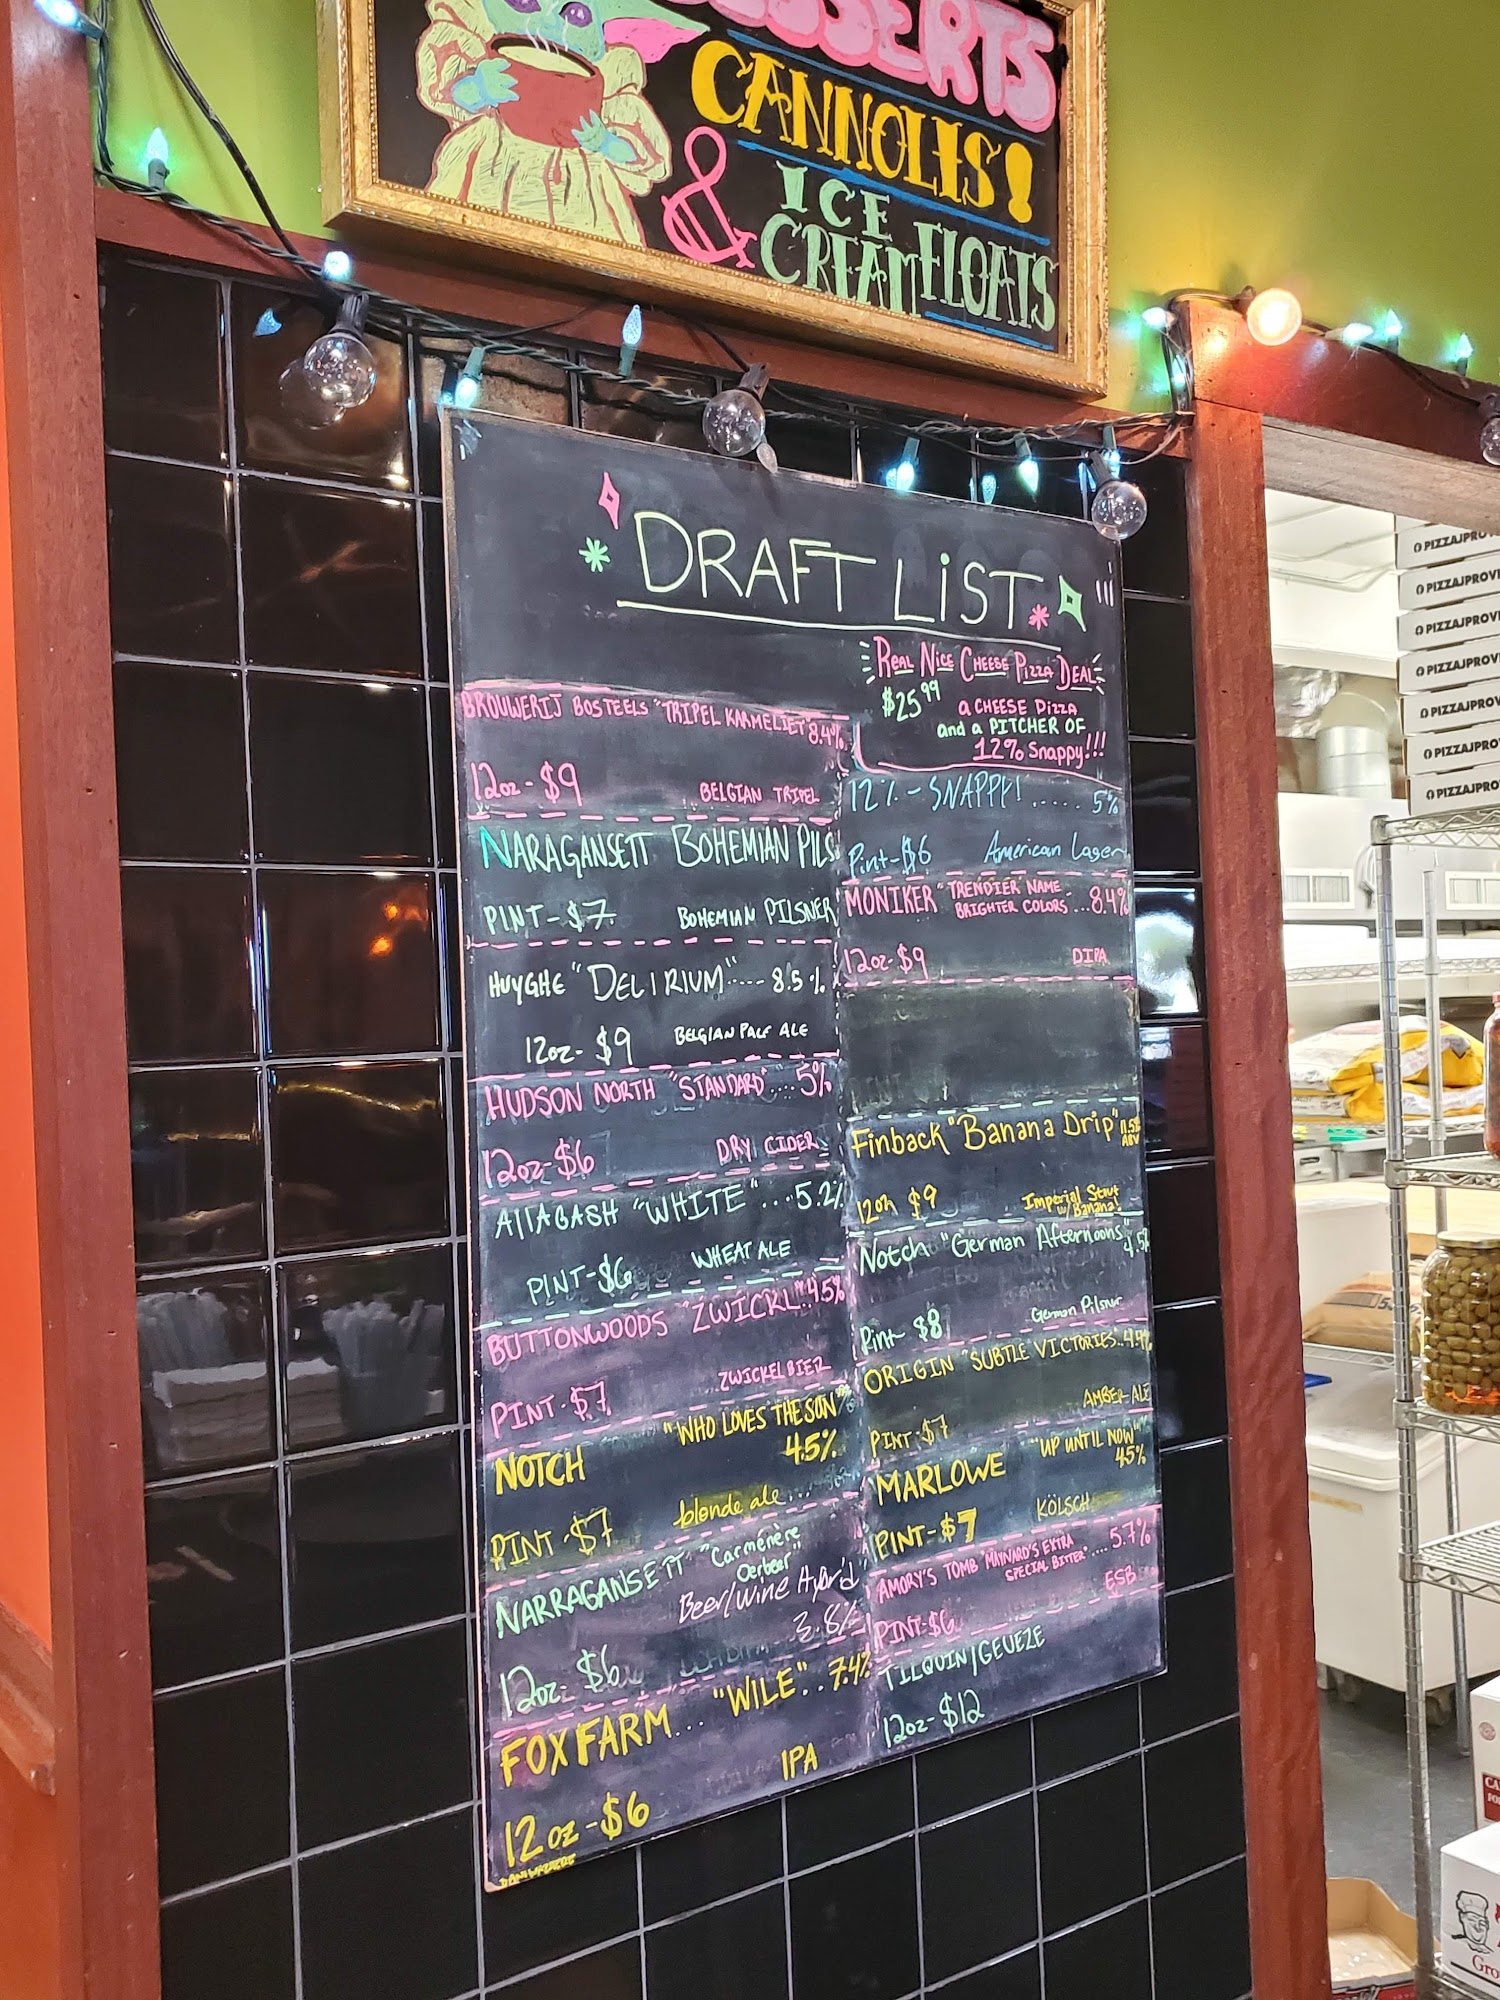 DESSERTS
CANNOLIS!
& ICE
CREAM FLOATS
DRAFT LIST
BROUWERIJ BOSTEELS "TRIPEL KARMELIET" 8.4%
12oz - $9 BELGIAN TRIPEL
NARAGANSETT BOHEMIAN PILS
PINT - $7 BOHEMIAN PILSNER
HUYGHE "DELIRIUM" .... 8.5%
12oz - $9 BELGIAN PALE ALE
HUDSON NORTH "STANDARD" .... 5%
12oz - $6 DRY CIDER
AllAGASH "WHITE" ... 5.2%
PINT - $6 WHEAT ALE
BUTTONWOODS "ZWICKL" .. 4.5%
PINT - $7 ZWICKELBIER
NOTCH "WHO LOVES THE SUN"
4.5%
PINT - $7 blonde ale...
NARRAGANSETT "Carménère
Oerbeer"
Beer/Wine Hybrid
3.8%
12oz - $6
FOX FARM... "WILE".. 7.4%
IPA
12oz - $6
REAL NICE CHEESE PIZZA DEAL
$25.99 a CHEESE PIZZA
and a PITCHER OF
12% Snappy!!!
12% - SNAPPY! ..... 5%
Pint - $6 American Lager
MONIKER "TRENDIER NAME
BRIGHTER COLORS ... 8.4%
12oz - $9 DIPA
Finback "Banana Drip" 11.5%
ABV
12oz $9 Imperial Stout
w/ Banana!
Notch "German Afternoons" 4.5%
Pint $8 German Pilsner
ORIGIN "SUBTLE VICTORIES.. 4.4%
PINT - $7 AMBER ALE
MARLOWE "UP UNTIL NOW"
4.5%
PINT - $7 KÖLSCH
AMORY'S TOMB "MAYNARD'S EXTRA
SPECIAL BITTER" .... 5.7%
PINT - $6 ESB
TILQUIN/GEUEZE
12oz - $12
PIZZAJPROV
PIZZAJPROV
PIZZAJPROV
PIZZAJPROV
PIZZAJPROV
PIZZAJPROV
PIZZAJPROV